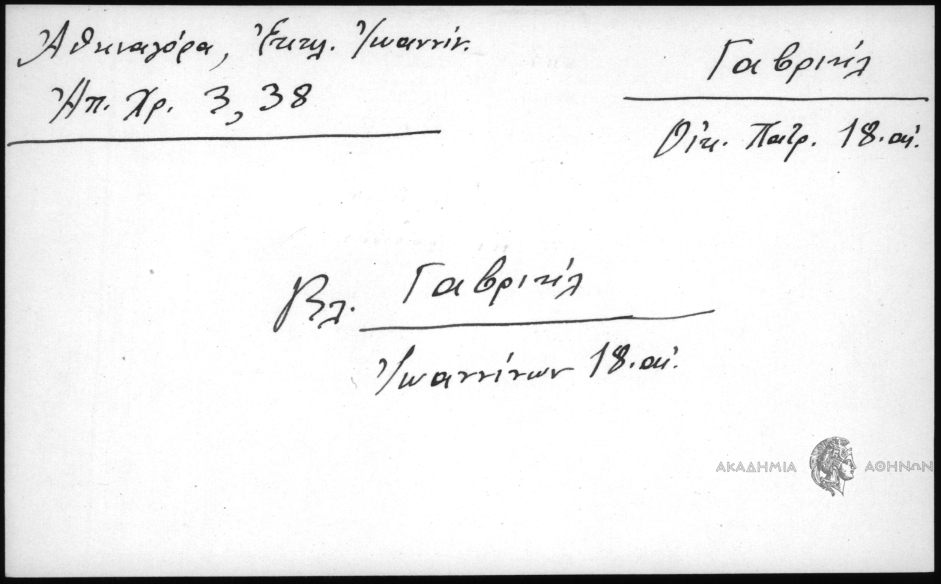 Ἀθηναγόρα, Ἐκκλ. Ἰωαννίν.
Ἀπ. Χρ. 3, 38
Γαβριήλ
Οἰκ. Πατρ. 18. αἰ.
Βλ. Γαβριήλ
Ἰωαννίνων 18. αἰ.
ΑΚΑΔΗΜΙΑ ΑΘΗΝΩΝ